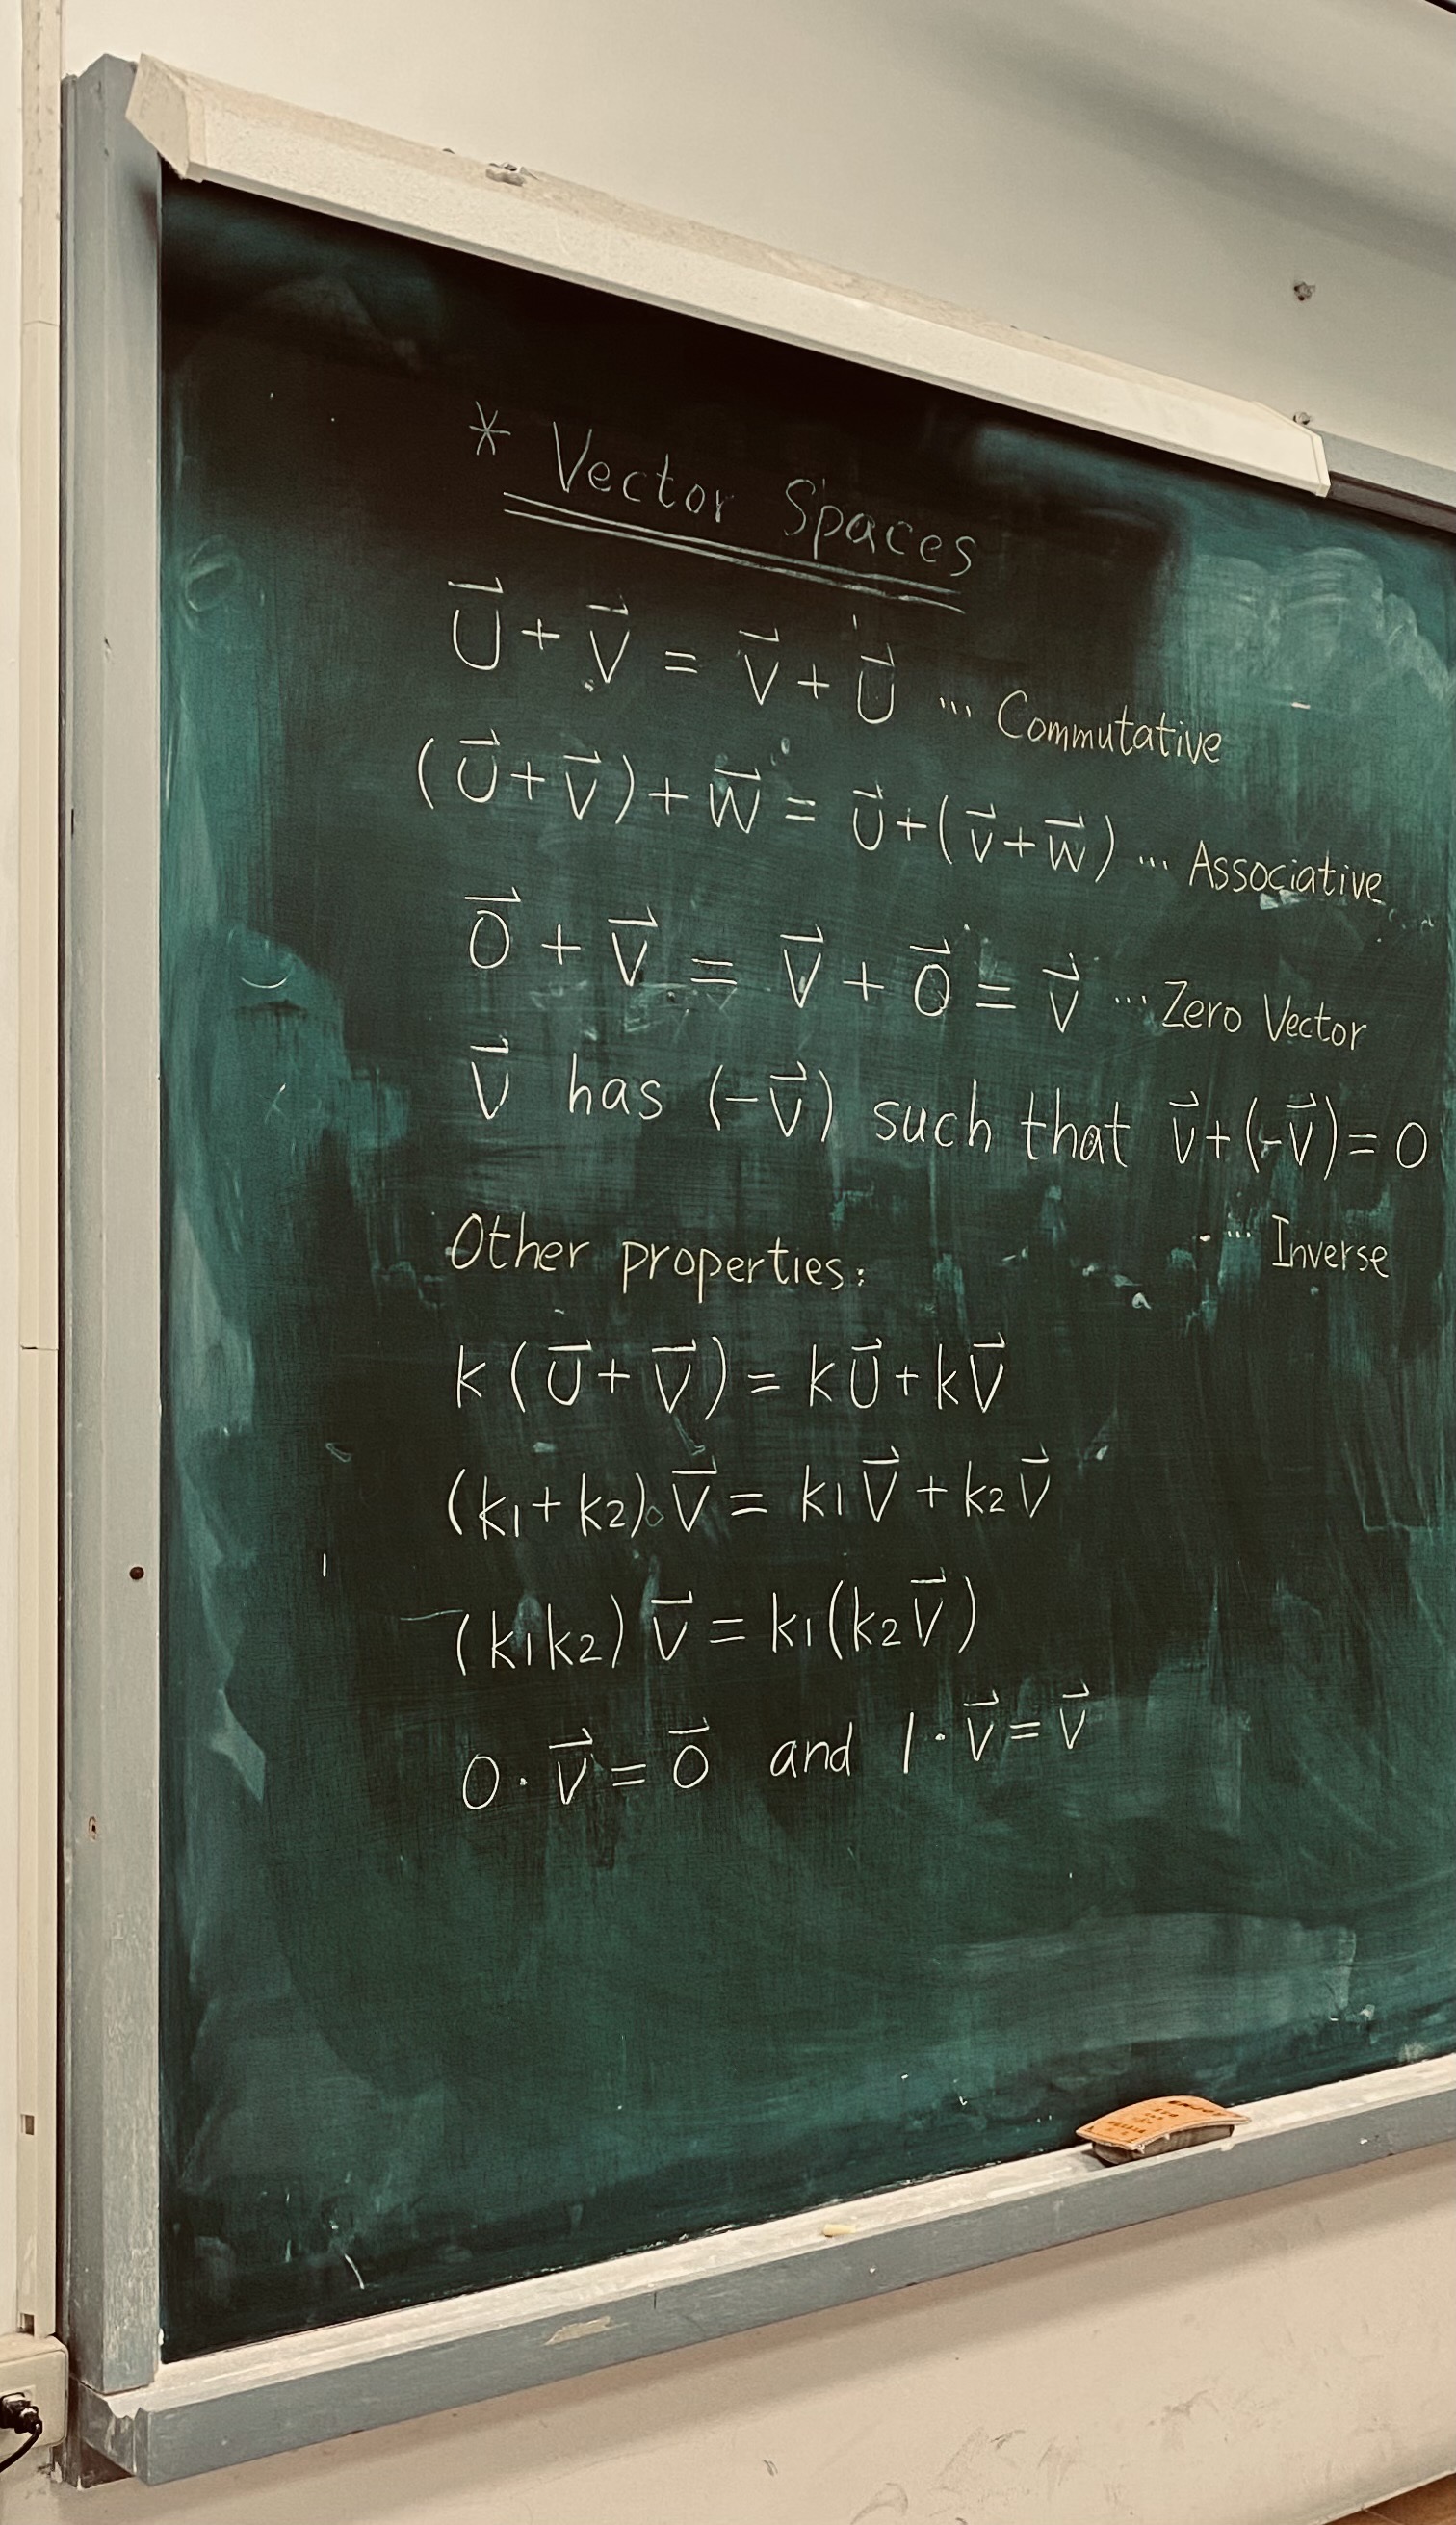 * Vector Spaces
U⃗ + V⃗ = V⃗ + U⃗ ... Commutative
(U⃗ + V⃗) + W⃗ = U⃗ + (V⃗ + W⃗) ... Associative
0⃗ + V⃗ = V⃗ + 0⃗ = V⃗ ... Zero Vector
V⃗ has (-V⃗) such that V⃗ + (-V⃗) = 0
... Inverse
Other properties:
k(U⃗ + V⃗) = kU⃗ + kV⃗
(k1 + k2)∘V⃗ = k1V⃗ + k2V⃗
(k1k2)V⃗ = k1(k2V⃗)
0·V⃗ = 0⃗ and 1·V⃗ = V⃗